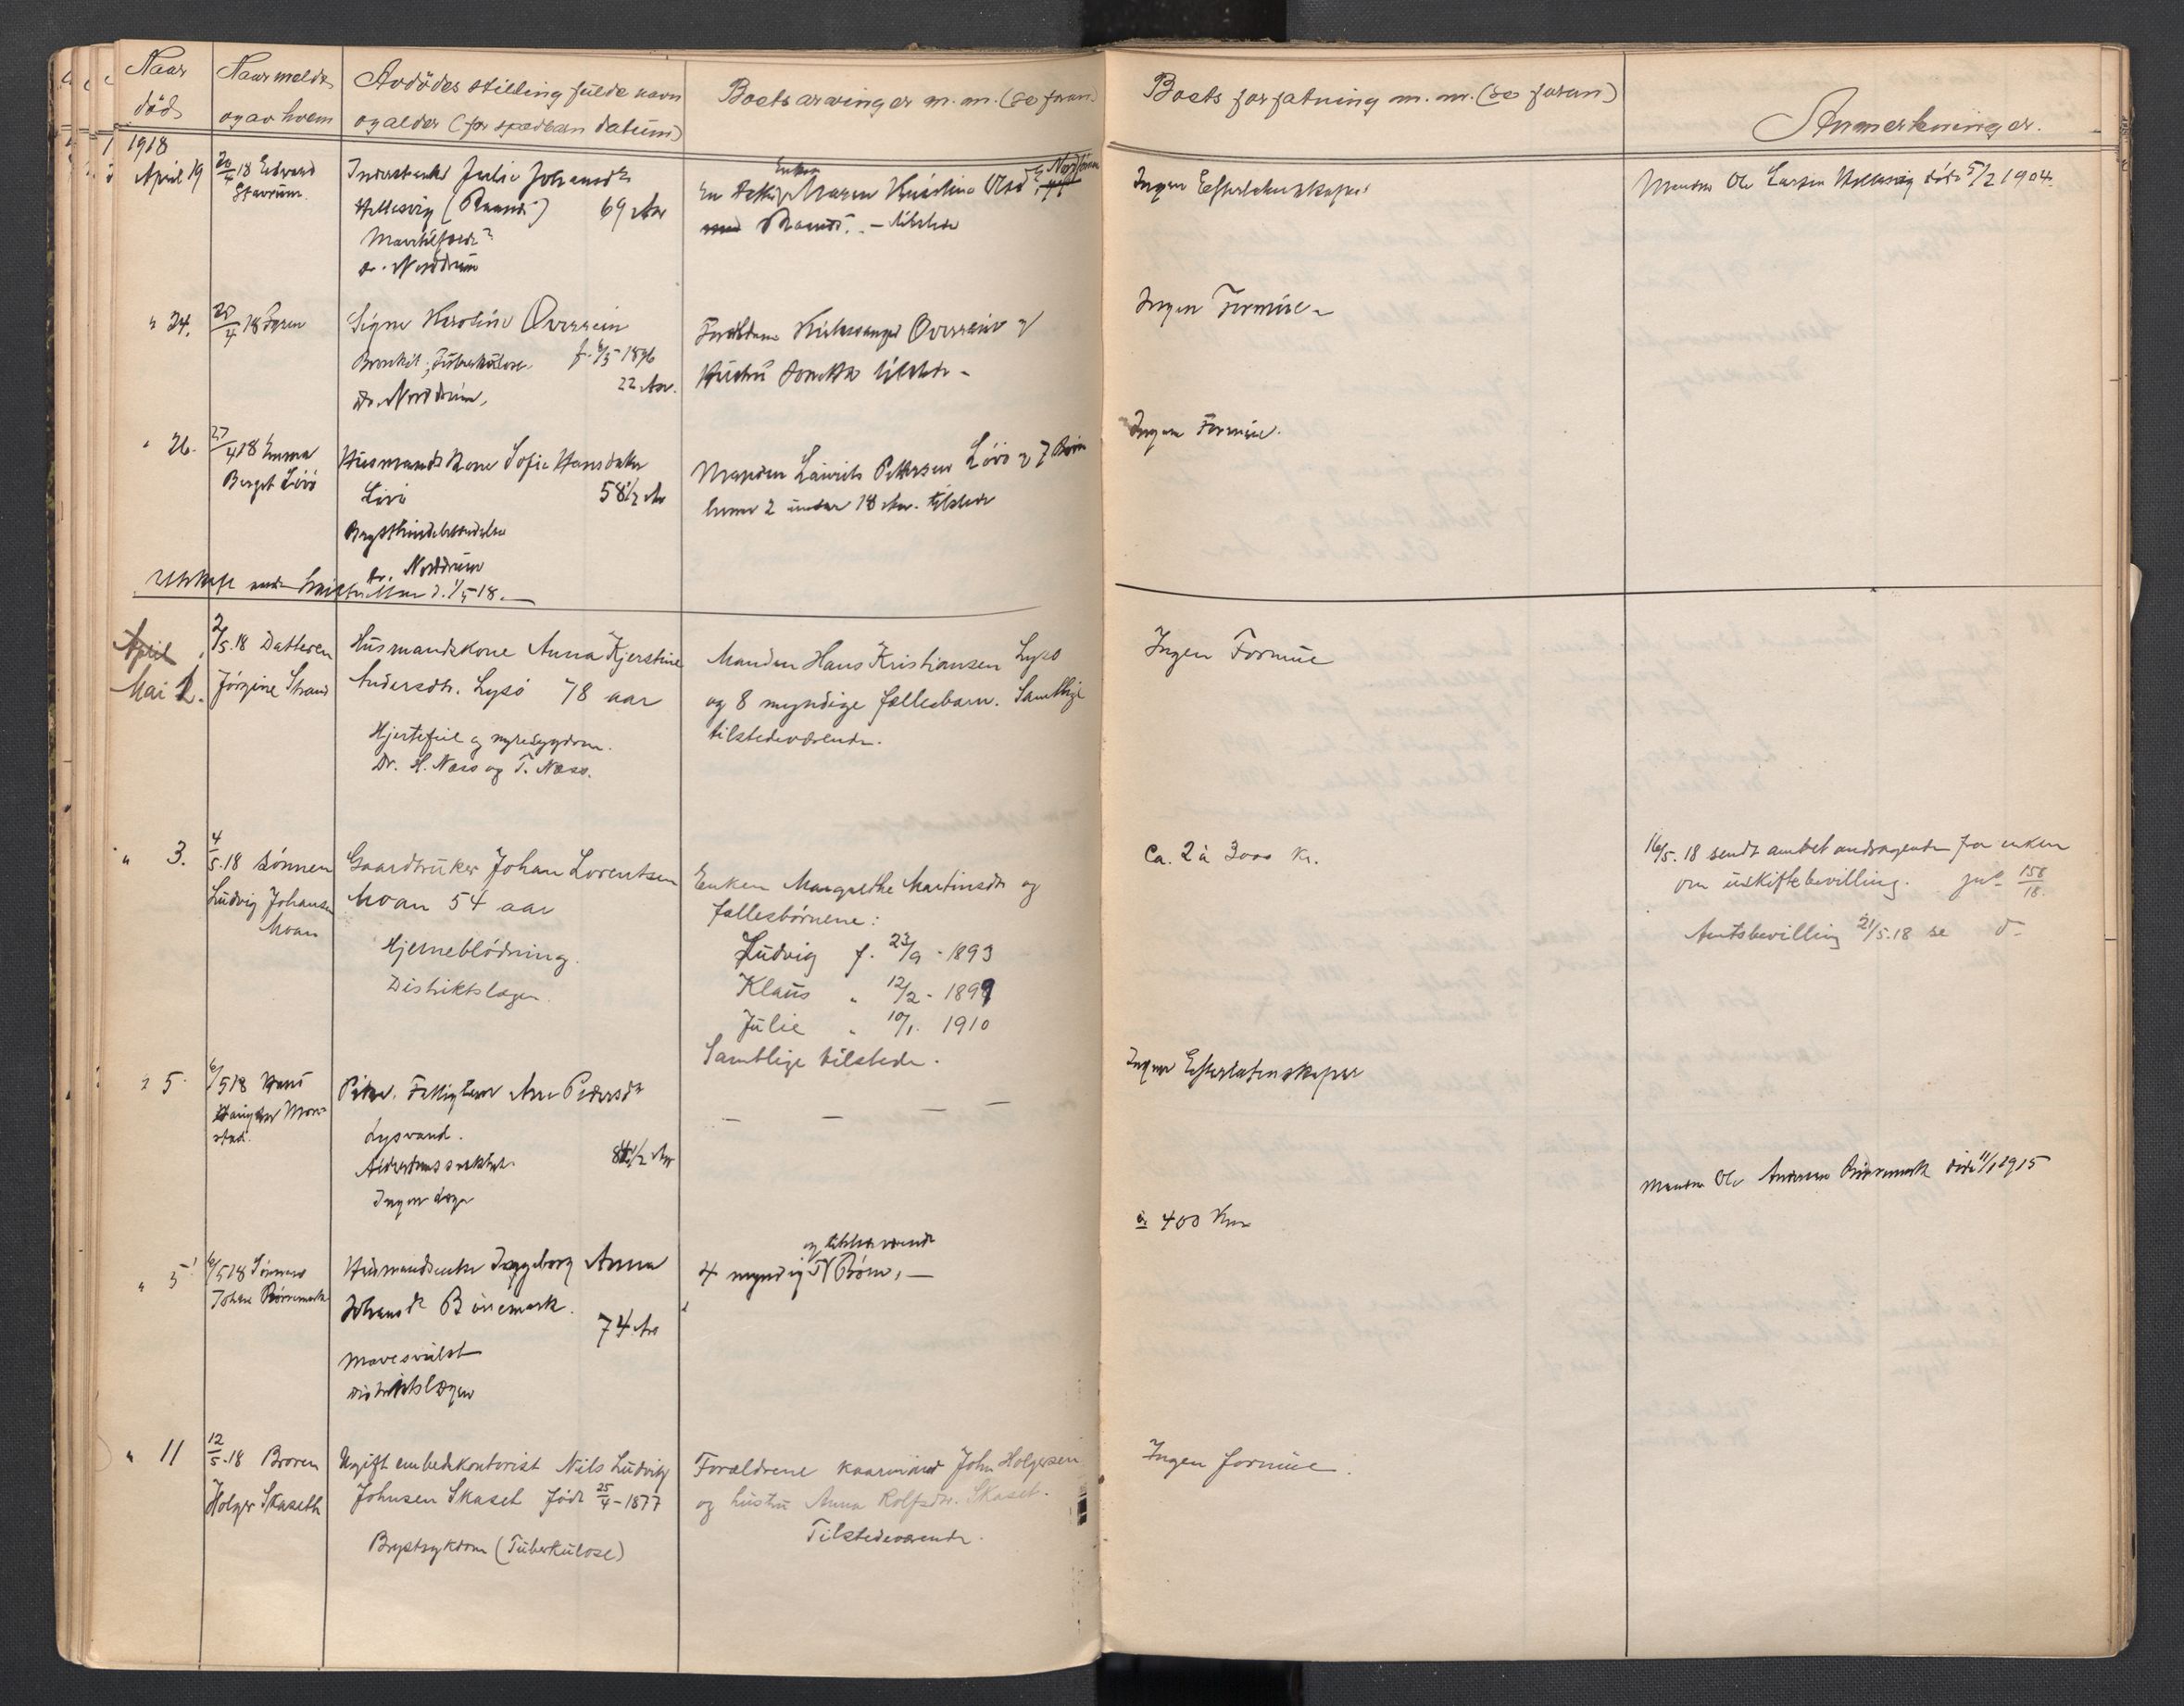 Naar
død
Naar meldt
og av hvem
Avdødes stilling fulde navn
og alder (for spædbarn datum)
Boets arvinger m. m. (se foran)
Boets forfatning m. m. (se foran)
Anmerkninger.
1918
April 19
20/4 18 Edvard
Stavrum.
Inderstenke Julie Johansdtr
Hellesvig (Raanes) 69 Aar
Dr. Norddrum
Enken
En Datter Maren Kristine Olsd
Raanes. - tilstede
Ingen Efterladenskaper
Manden Ole Larsen Hellesvig døde 5/2 1904.
" 24.
25/4 18 Faren
Signe Karoline Overrein
Bronkit, Tuberkulose. f. 6/5 1896
22 Aar.
Dr. Norddrum,
Forældrene Kirkesanger Overrein og
Hustru tilstede -
Ingen Formue -
" 26.
27/4 18 Emma
Berget Livø
Husmandskone Sofie Hansdatter
Livø 58 1/2 Aar
Brysthindebetændelse
Dr. Norddrum
Manden Laurits Pettersen Livø og 7 Børn
hvorav 2 under 18 Aar. tilstede
Ingen Formue.
Utskrift 1/5 18. -
April
Mai 1.
2/5. 18 Datteren
Jørgine Strand
Husmandskone Anna Kjerstine
Andersdtr. Lysø 78 aar
Hjertefeil og nyresygdom.
Dr. H. Næss og T. Næss.
Manden Hans Kristiansen Lysø
og 8 myndige fællesbarn. Samtlige
tilstedeværende.
Ingen Formue
" 3.
4/5. 18 Sønnen
Ludvig Johansen
Moan
Gaardbruker Johan Lorentsen
Moan 54 aar
Hjerneblødning.
Distriktslægen.
Enken Margrethe Martinsdtr og
fællesbørnene:
Ludvig f. 23/9 - 1893
Klaus " 12/2 - 1899
Julie " 10/1. 1910
Samtlige tilstede.
Ca. 2 à 3000 Kr.
16/5. 18 sendt amtet andragende fra enken
om uskiftebevilling. jnl 158/18.
Amtsbevilling 21/5. 18 se d.
" 5.
6/5 18 Hans
Pike, Fattiglem Ane Pedersdtr
Lysvand.
Alderdomssvakhet
Ingen Læge
- - - -
Ingen Efterladenskaper
" 5
6/5 18 Sønnen
Johan Børremark
Husmandsenke Ingeborg Anna
Johansdtr Børremark.
74 Aar
Mavesvulst
Distriktslægen
og tilstedeværende
4 myndige Børn, -
ca 400 Kr
Manden Ole Andersen Børremark døde 11/1 1915
" 11
12/5. 18 Broren
Holger Skaseth
Ugift embedskontorist Nils Ludvig
Johnsen Skaset født 25/4 - 1877
Brystsykdom (Tuberkulose)
Forældrene kaarmand John Holgersen
og hustru Anna Rolfsdtr. Skaset.
Tilstedeværende.
Ingen formue.